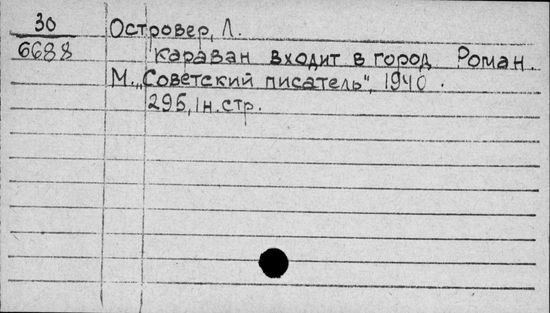 30 Островер, Л.
6688 Караван входит в город Роман.
М., „Советский писатель", 1940.
295, 1н.стр.